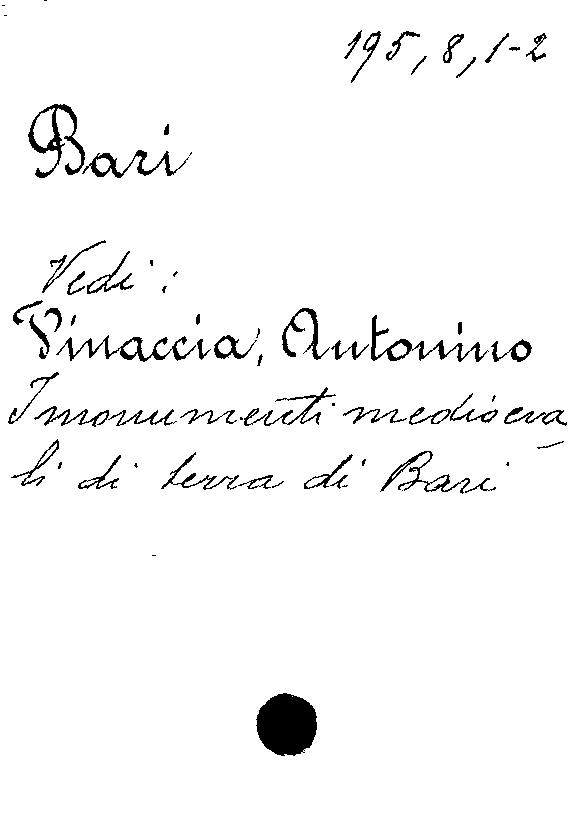 195, 8, 1-2
Bari
Vedi:
Vinaccia, Antonino
I monumenti medioeva
li di terra di Bari